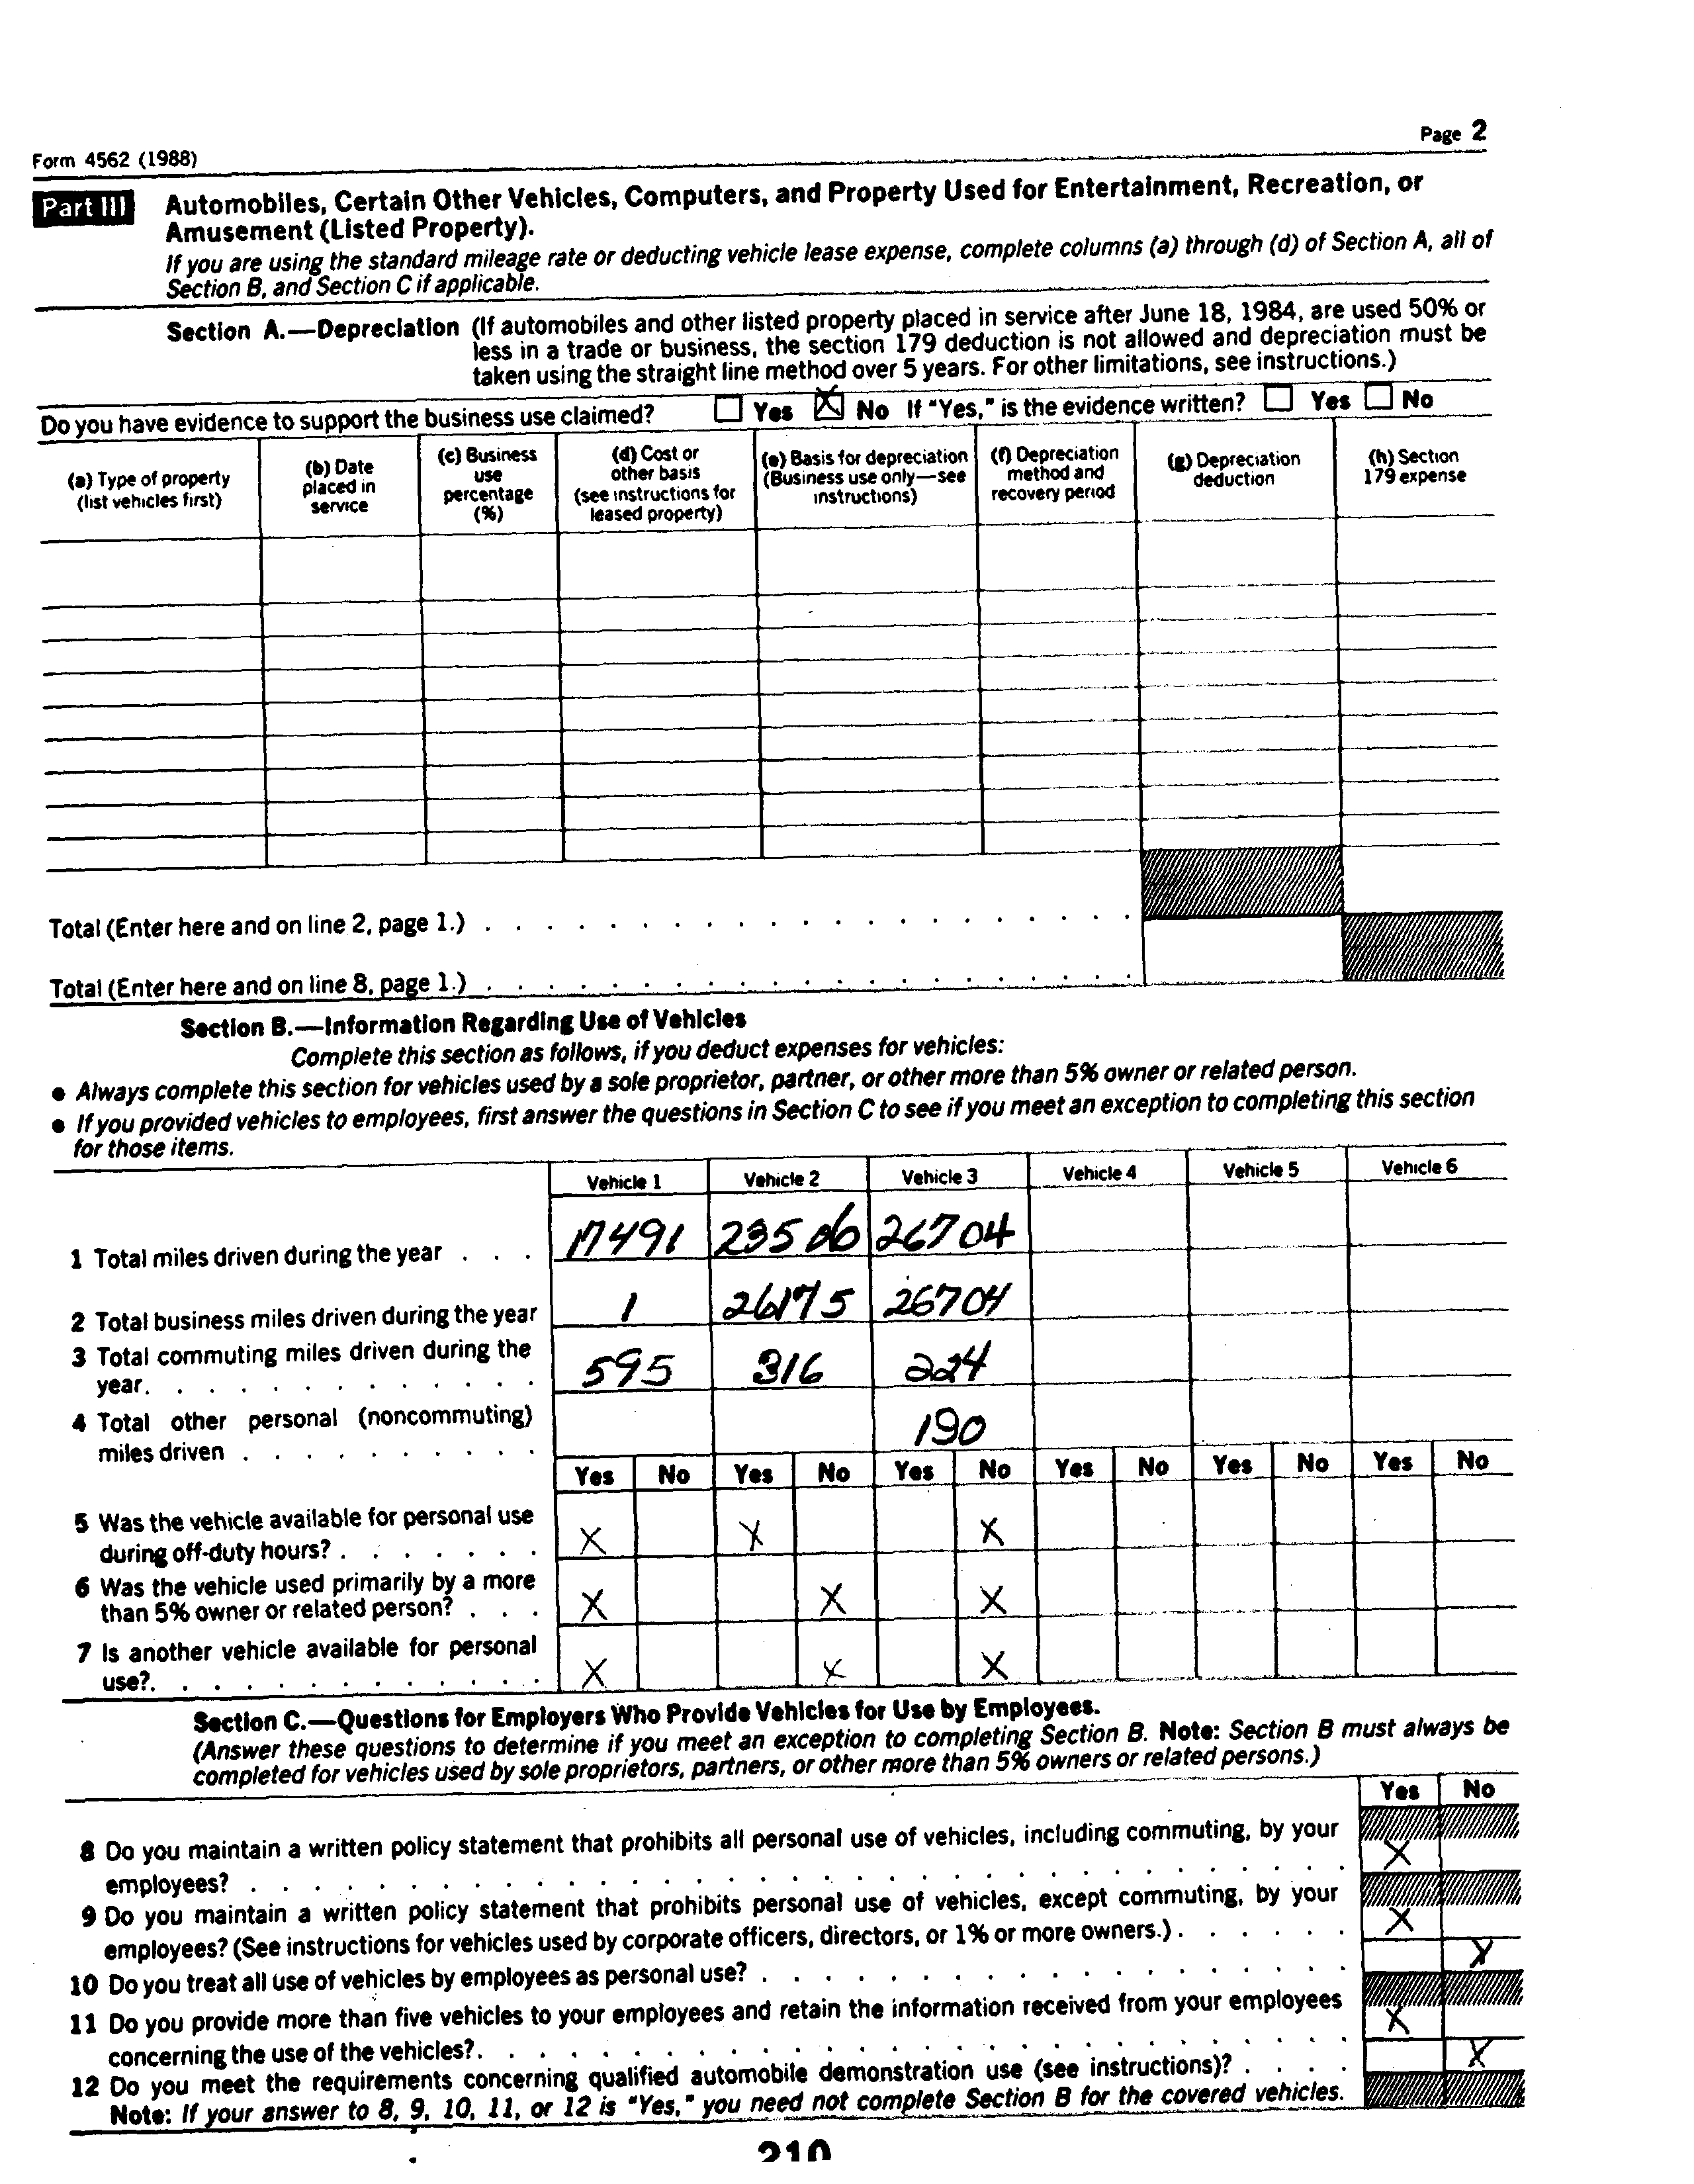 Page 2
Form 4562 (1988)
Part III Automobiles, Certain Other Vehicles, Computers, and Property Used for Entertainment, Recreation, or
Amusement (Listed Property).
If you are using the standard mileage rate or deducting vehicle lease expense, complete columns (a) through (d) of Section A, all of
Section B, and Section C if applicable.
Section A.—Depreciation (If automobiles and other listed property placed in service after June 18, 1984, are used 50% or
less in a trade or business, the section 179 deduction is not allowed and depreciation must be
taken using the straight line method over 5 years. For other limitations, see instructions.)
Do you have evidence to support the business use claimed? Yes X No If "Yes," is the evidence written? Yes No
(a) Type of property
(list vehicles first)
(b) Date
placed in
service
(c) Business
use
percentage
(%)
(d) Cost or
other basis
(see instructions for
leased property)
(e) Basis for depreciation
(Business use only—see
instructions)
(f) Depreciation
method and
recovery period
(g) Depreciation
deduction
(h) Section
179 expense
Total (Enter here and on line 2, page 1.) . . . . . . . . . . . . . . . . . . . . .
Total (Enter here and on line 8, page 1.) . . . . . . . . . . . . . . . . . . . . .
Section B.—Information Regarding Use of Vehicles
Complete this section as follows, if you deduct expenses for vehicles:
● Always complete this section for vehicles used by a sole proprietor, partner, or other more than 5% owner or related person.
● If you provided vehicles to employees, first answer the questions in Section C to see if you meet an exception to completing this section
for those items.
Vehicle 1 Vehicle 2 Vehicle 3 Vehicle 4 Vehicle 5 Vehicle 6
1 Total miles driven during the year . . . 17491 23506 26704
2 Total business miles driven during the year 1 26175 26704
3 Total commuting miles driven during the
year. . . . . . . . . . . . . 595 316 224
4 Total other personal (noncommuting)
miles driven . . . . . . . . . 190
Yes No Yes No Yes No Yes No Yes No Yes No
5 Was the vehicle available for personal use
during off-duty hours? . . . . . . . X X X
6 Was the vehicle used primarily by a more
than 5% owner or related person? . . . X X X
7 Is another vehicle available for personal
use?. . . . . . . . . . . . . X X X
Section C.—Questions for Employers Who Provide Vehicles for Use by Employees.
(Answer these questions to determine if you meet an exception to completing Section B. Note: Section B must always be
completed for vehicles used by sole proprietors, partners, or other more than 5% owners or related persons.)
Yes No
8 Do you maintain a written policy statement that prohibits all personal use of vehicles, including commuting, by your
employees? . . . . . . . . . . . . . . . . . . . . . . . . . . . . . . . . . . . X
9 Do you maintain a written policy statement that prohibits personal use of vehicles, except commuting, by your
employees? (See instructions for vehicles used by corporate officers, directors, or 1% or more owners.) . . . . . . X
10 Do you treat all use of vehicles by employees as personal use? . . . . . . . . . . . . . . . . . . . X
11 Do you provide more than five vehicles to your employees and retain the information received from your employees
concerning the use of the vehicles?. . . . . . . . . . . . . . . . . . . . . . . . . . . . X
12 Do you meet the requirements concerning qualified automobile demonstration use (see instructions)? . . . . X
Note: If your answer to 8, 9, 10, 11, or 12 is "Yes," you need not complete Section B for the covered vehicles.
210